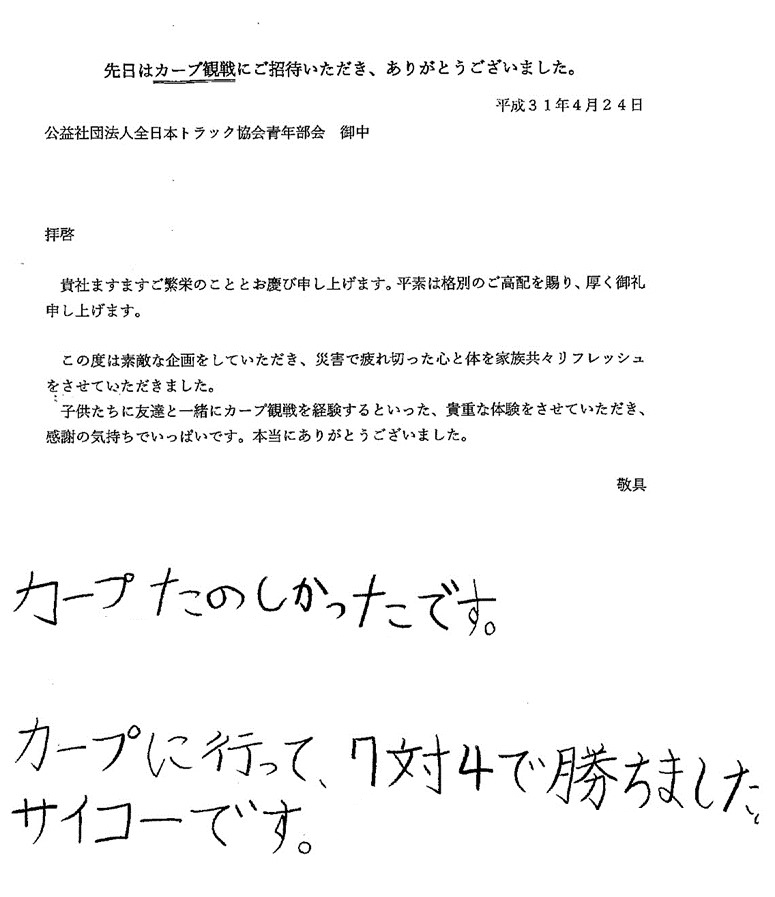 先日はカープ観戦にご招待いただき、ありがとうございました。
平成３１年４月２４日
公益社団法人全日本トラック協会青年部会　御中
拝啓
貴社ますますご繁栄のこととお慶び申し上げます。平素は格別のご高配を賜り、厚く御礼
申し上げます。
この度は素敵な企画をしていただき、災害で疲れ切った心と体を家族共々リフレッシュ
をさせていただきました。
子供たちに友達と一緒にカープ観戦を経験するといった、貴重な体験をさせていただき、
感謝の気持ちでいっぱいです。本当にありがとうございました。
敬具
カープたのしかったです。
カープに行って、7対4で勝ちました。
サイコーです。